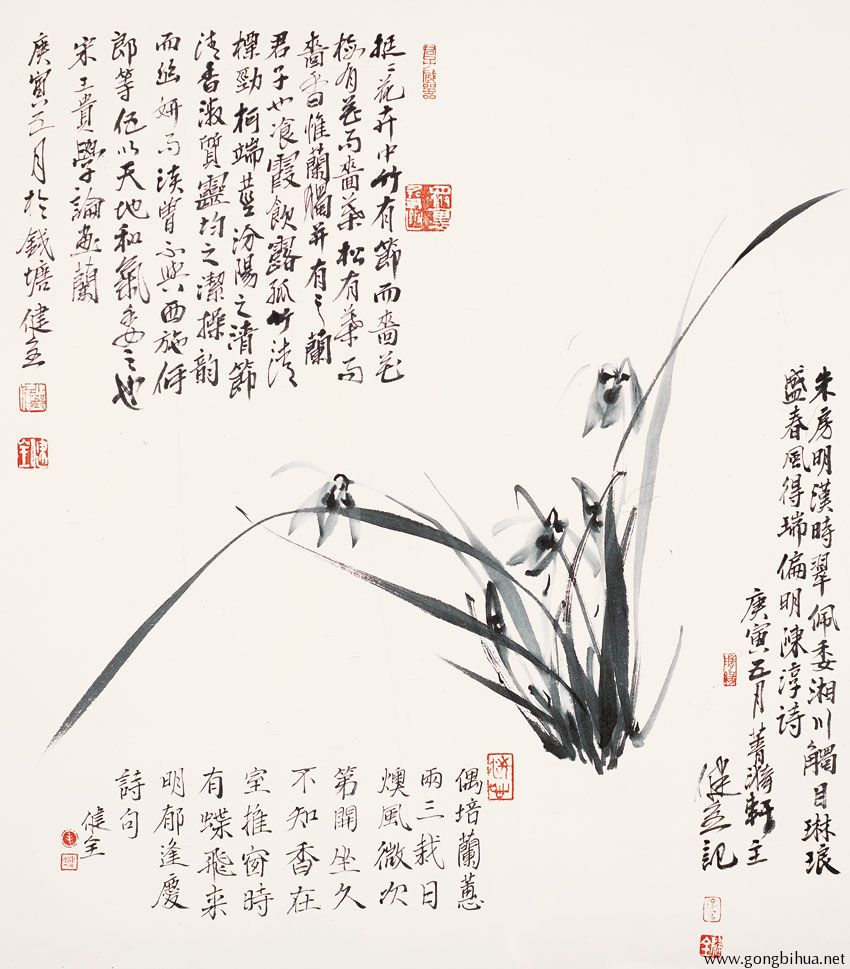 挺〻花卉中竹有節而嗇花
梅有花而嗇葉松有葉而
嗇香惟蘭獨并有之蘭
君子也飡霞飲露孤竹清
標勁柯端莖汾陽之清節
清香淑質靈均之潔操韵
而幽妍而淡曾不與西施何
郎等伍以天地和氣委之也
宋王貴學論画蘭
庚寅五月於錢塘健全
朱房明漢時翠佩委湘川觸目琳琅
盛春風得瑞偏明陳淳詩
庚寅五月菁漪軒主
健全記
偶培蘭蕙
兩三栽日
燠風微次
第開坐久
不知香在
室推窗時
有蝶飛来
明郁逢慶
詩句
健全
www.gongbihua.net